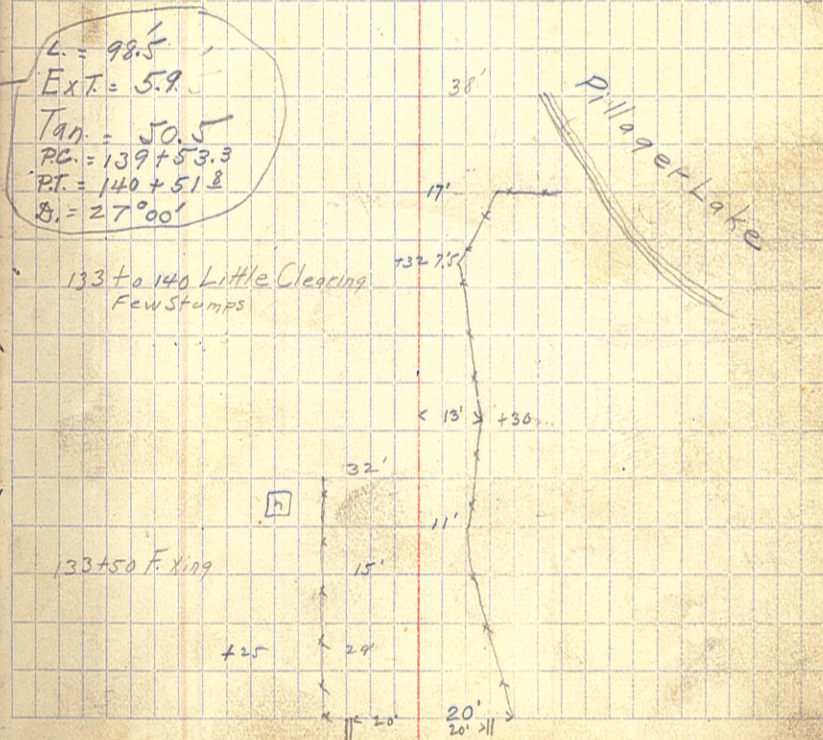 L. = 98.5'
Ext. = 5.9
Tan. = 50.5
P.C. = 139+53.3
P.T. = 140+51 8
D. = 27°00'
38'
Pillager Lake
17'
+32 7.5
133 to 140 Little Clearing
Few Stumps
13' +30
32'
h
11'
133+50 F. Xing
15'
+25
29'
20'
20'
20'